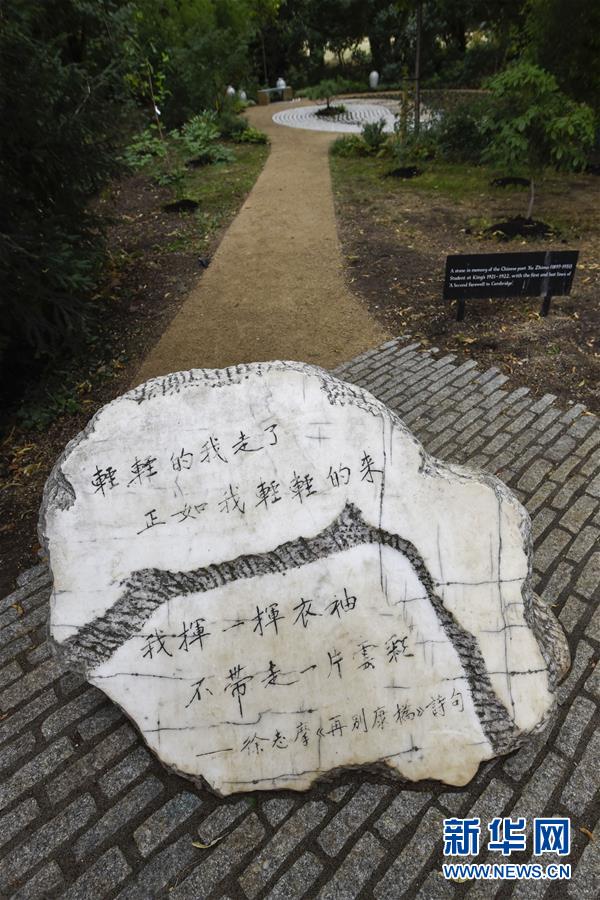 A stone in memory of the Chinese poet Xu Zhimo (1897-1931)
Student at King's 1921-1922, with the first and last lines of
'A Second Farewell to Cambridge'
輕輕的我走了
正如我輕輕的來
我揮一揮衣袖
不帶走一片雲彩
—徐志摩《再別康橋》詩句
新华网
WWW.NEWS.CN